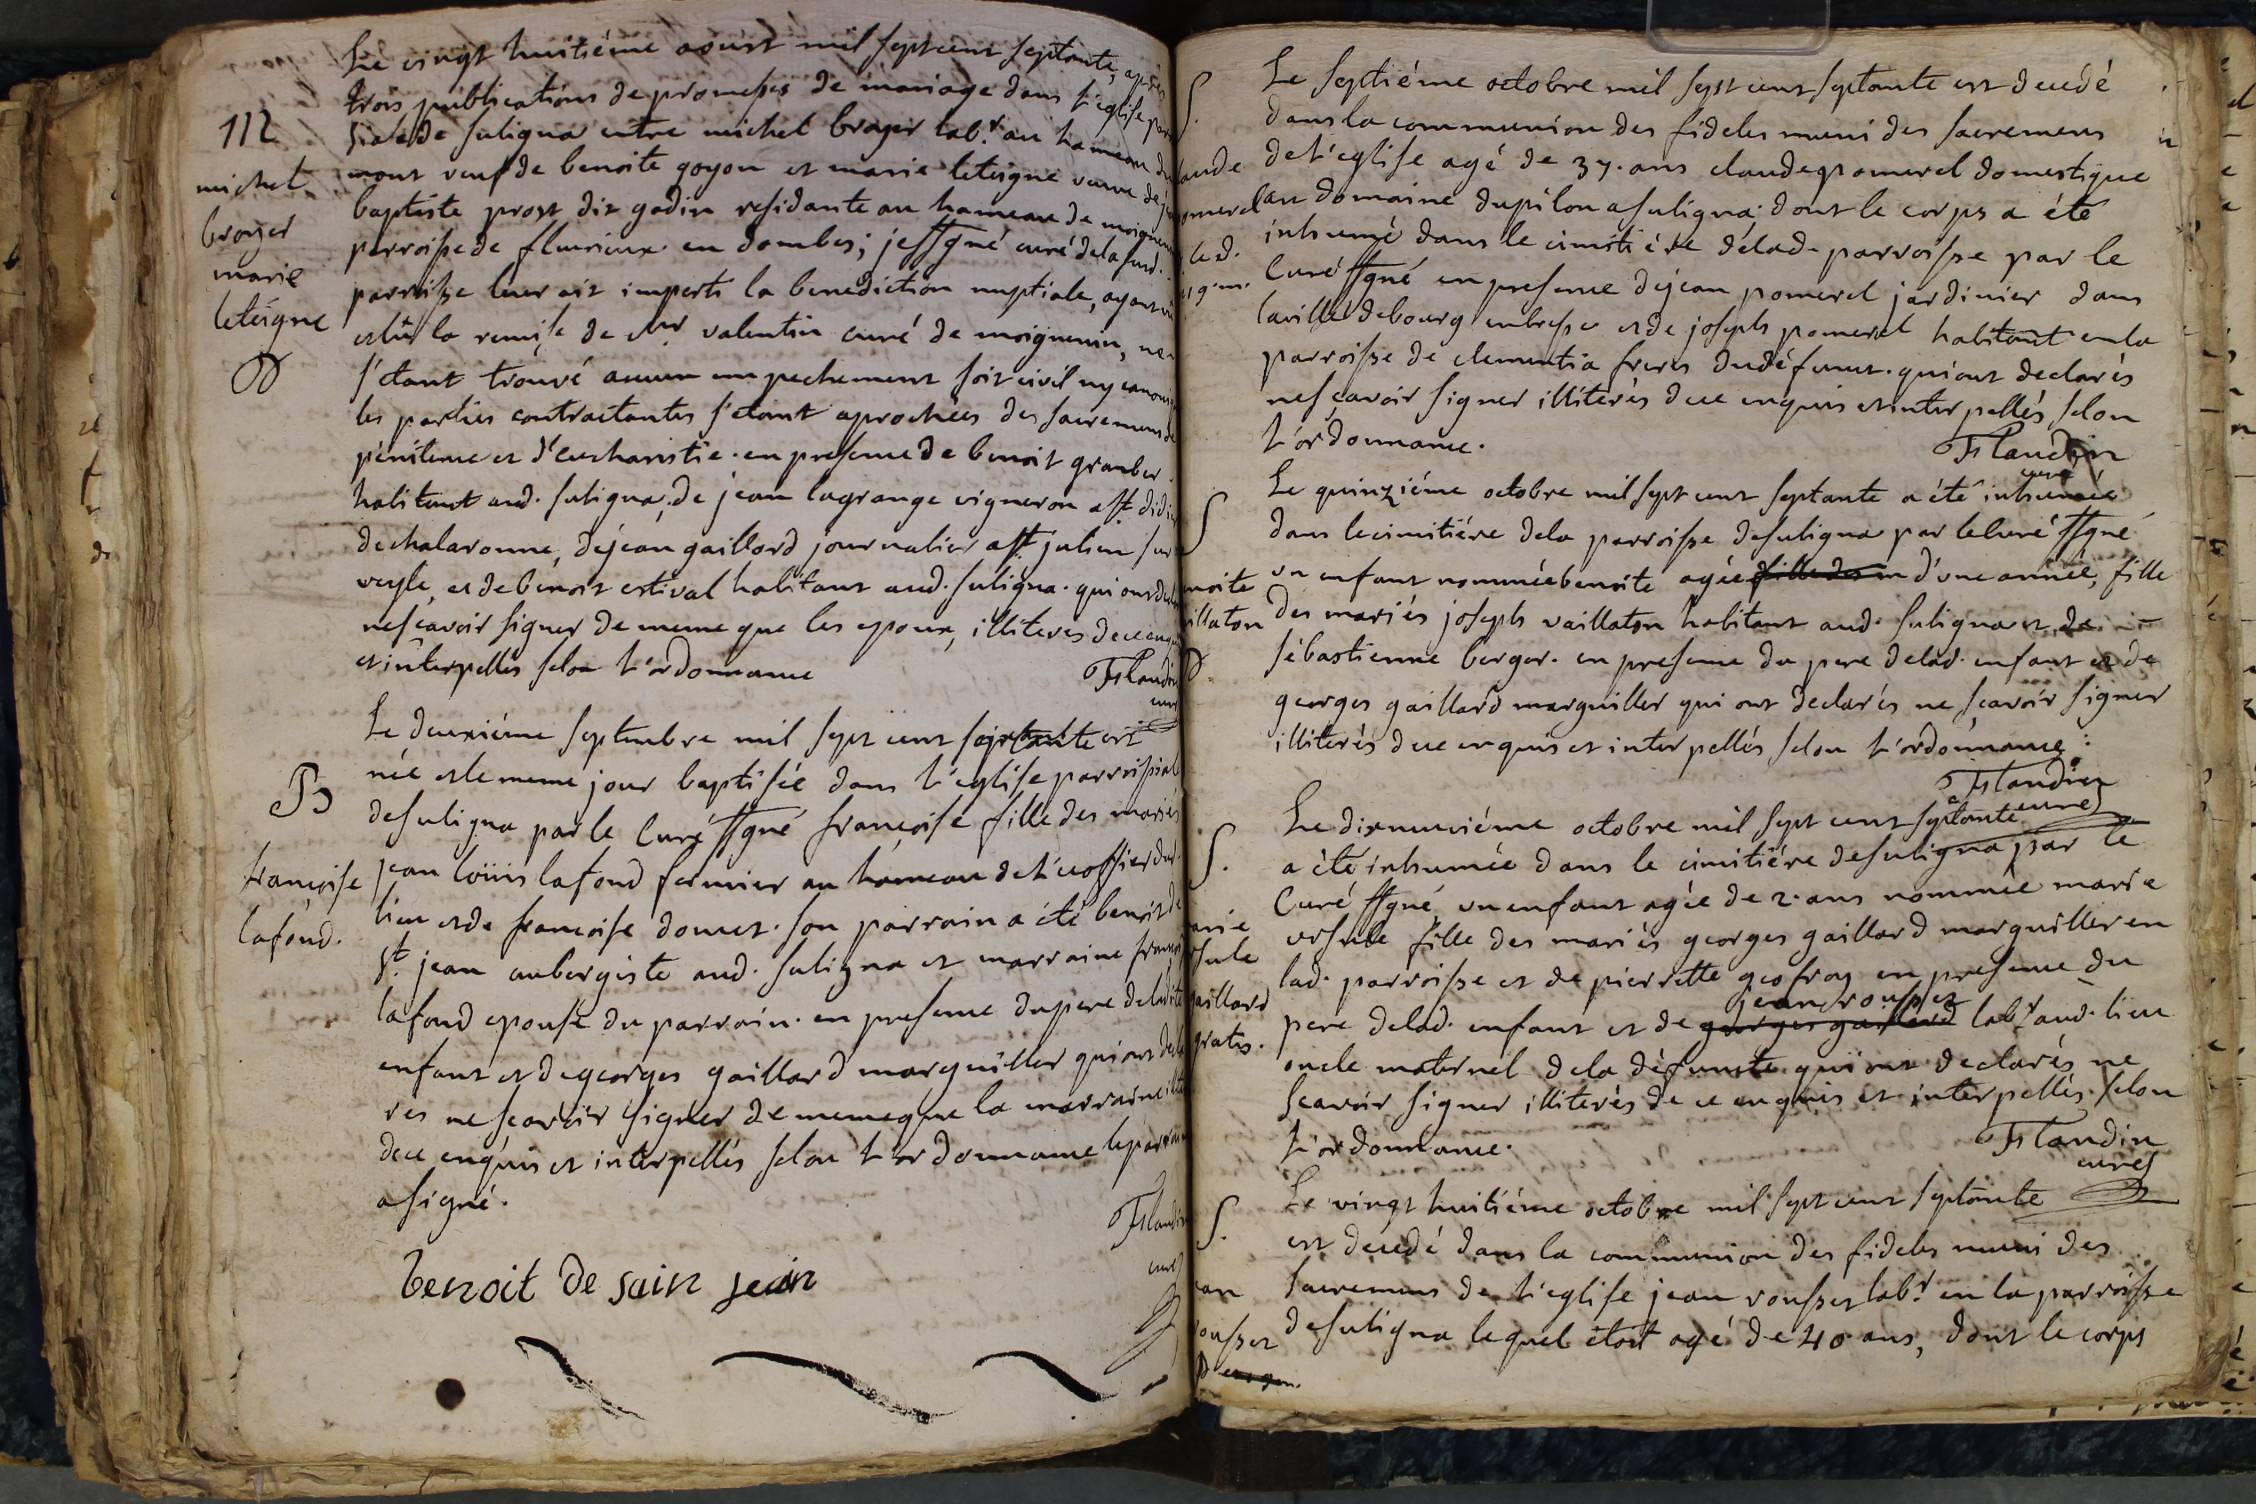 Le vingt huitiéme aoust mil sept cent septante, après
trois publications de promesses de mariage dans l'eglise par
siale de suligna entre michel broyer lab.r au hameau du
mont veuf de benoite goyon et marie letéigne veuve de j
baptiste prost dit godin residante au hameau de moignenin
parroisse de flurieux en dombes; je ssgné curé dela susd.
parroisse leur ait imparti la benediction nuptiale, ayant vu
et lû la remise de Mr valentin curé de moignenin, ne
s'etant trouvé aucun empechement soit civil ny canonique
les parties contractantes s'etant aprochées des sacremens de
pénitence et d'eucharistie. en presence de benoit grauber
habitant aud. suligna, de jean lagrange vigneron a st didier
de chalaronne, de jean gaillard journalier a st julien sur
veyle, et de benoit estival habitant aud. suligna. qui ont de
ne scavoir signer de meme que les epoux, illiteres de ce enquis
et interpellés selon l'ordonnance
Flandin
curé
112
michel
broyer
marie
letéigne
Le deuxiéme septembre mil sept cent septante est
née et le meme jour baptisée dans l'eglise parroissial
de suligna par le Curé ssgné françoise fille des mariés
jean loüis lafond fermier au hameau de l'ecossier dud.
lieu et de francoise douvet. son parrain a été benoit de
st. jean aubergiste aud. suligna et marraine francoi
lafond epouse du parrain. en presence du pere de ladite
enfant et de georges gaillard marguiller qui ont decla
res ne scavoir signer de meme que la marraine illi
de ce enquis et interpellés selon l'ordonnance le parrain
a signé.
Flandin
curé
benoit de sain jean
B
françoise
lafond.
Le septiéme octobre mil sept cent septante est decedé
dans la communion des fideles muni des sacremens
de l'eglise agé de 37. ans claude pomerel domestique
au domaine du pilon a suligna; dont le corps a été
inhumé dans le cimetiére de lad. parroisse par le
Curé ssgné en presence de jean pomerel jardinier dans
la ville de bourg en bresse et de joseph pomerel habitant en la
parroisse de clementia freres du défunt. qui ont declarés
ne scavoir signer illiterés de ce enquis et interpellés selon
l'ordonnance.
Flandin
curé
S.
aude
omerel
Le quinziéme octobre mil sept cent septante a été inhumée
dans le cimitiére de la parroisse de suligna par le Curé ssgné
un enfant nommée benoite agée fille des m d'une année, fille
des mariés joseph vaillaton habitant aud. suligna et de
sébastienne berger. en presence du pere de lad. enfant et de
georges gaillard marguiller qui ont declarés ne scavoir signer
illiterés de ce enquis et interpellés selon l'ordonnance:
Flandin
curé
S
noite
illaton
Le dixneuviéme octobre mil sept cent septante
a été inhumée dans le cimitiére de suligna par le
Curé ssgné un enfant agée de 2. ans nommée marie
ursule fille des mariés georges gaillard marguiller en
lad. parroisse et de pierrette geofray en presence du
pere de lad. enfant et de georges gaillard jean rousset lab.r aud. lieu
oncle maternel de la défunte. qui ont declarés ne
scavoir signer illiterés de ce enquis et interpellés selon
l'ordonnance.
Flandin
curé
S.
arie
rsule
gaillard
gratis.
Le vingt huitiéme octobre mil sept cent septante
est decedé dans la communion des fideles muni des
sacremens de l'eglise jean rousset lab.r en la parroisse
de suligna lequel étoit agé de 40 ans, dont le corps
S.
ean
ousset